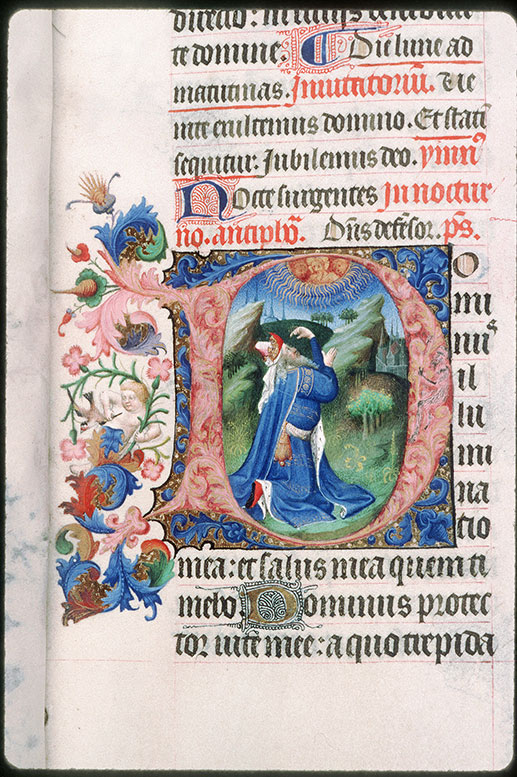 te domine. Die lune ad
matutinas. Inuitatoriū. Ue
nite exultemus domino. Et statī
sequitur. Jubilemus deo. ymnꝰ
Nocte surgentes In noctur
no. antiph̄. Dn̄s defēsor. p̄s.
Do
mi
nuˢ
il
lu
mi
na
tio
mea: et salus mea quem ti
mebo Dominus protec
tor uite mee: a quo trepida